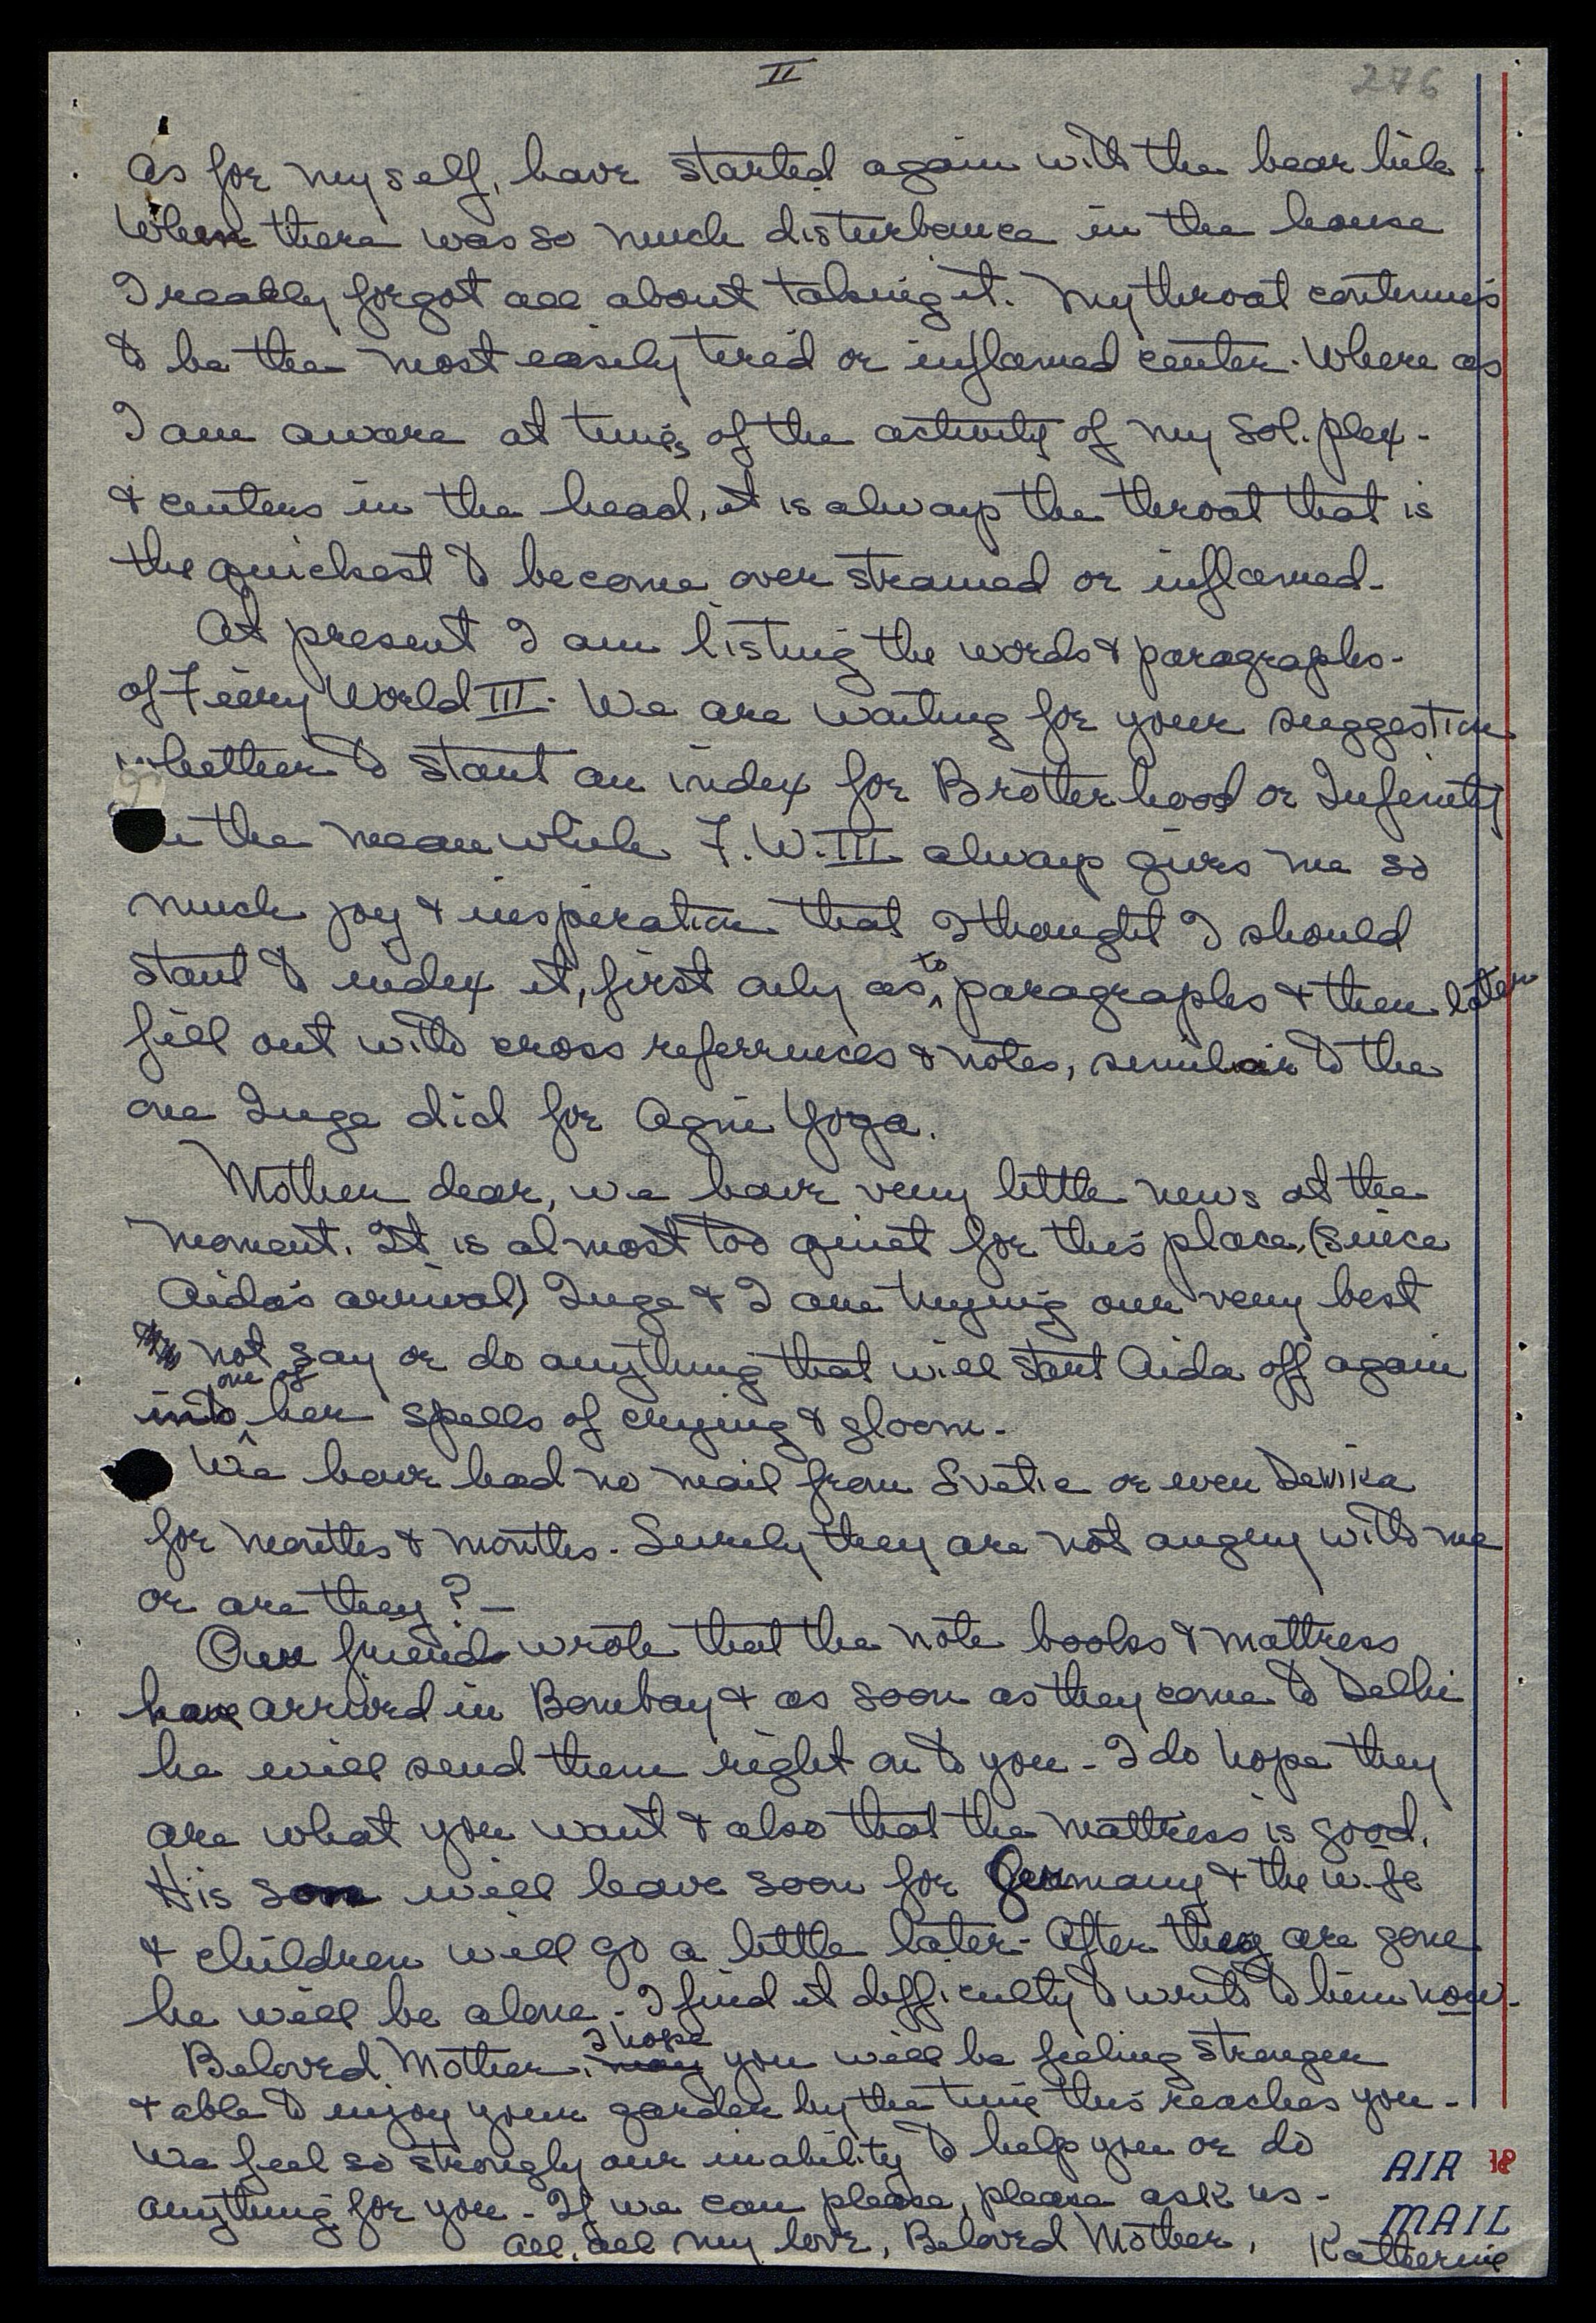 II
276
As for myself, have started again with the bear bile.
When there was so much disturbance in the house
I really forgot all about taking it. My throat continues
to be the most easily tired or inflamed center. Where as
I am aware at times of the activity of my sol. plex.
& centers in the head, it is always the throat that is
the quickest to become over strained or inflamed.
At present I am listing the words & paragraphs.
of Fiery World III. We are waiting for your suggestion
whether to start an index for Brotherhood or Infinity
in the mean while F.W.III always gives me so
much joy & inspiration that I thought I should
start to index it, first only as to paragraphs & then later
fill out with cross referrences & notes, similair to the
one Inge did for Agni Yoga.
Mother dear, we have very little news at the
moment. It is almost too quiet for this place, (since
Aida's arrival) Inge & I are trying our very best
not say or do anything that will start Aida off again
into one of her spells of crying & gloom.
We have had no mail from Svetie or even Devika
for months & months. Surely they are not angry with me
or are they? —
Our friend wrote that the note books & mattress
have arrived in Bombay & as soon as they come to Delhi
he will send them right on to you - I do hope they
are what you want & also that the mattress is good.
His son will leave soon for Germany & the wife
& children will go a little later - After they are gone
he will be alone - I find it difficulty to write to him now.
Beloved Mother, I hope you will be feeling stronger
& able to enjoy your garden by the time this reaches you -
We feel so strongly our inability to help you or do
anything for you - If we can please, please ask us -
All, all my love, Beloved Mother, Katherine
AIR 18
MAIL